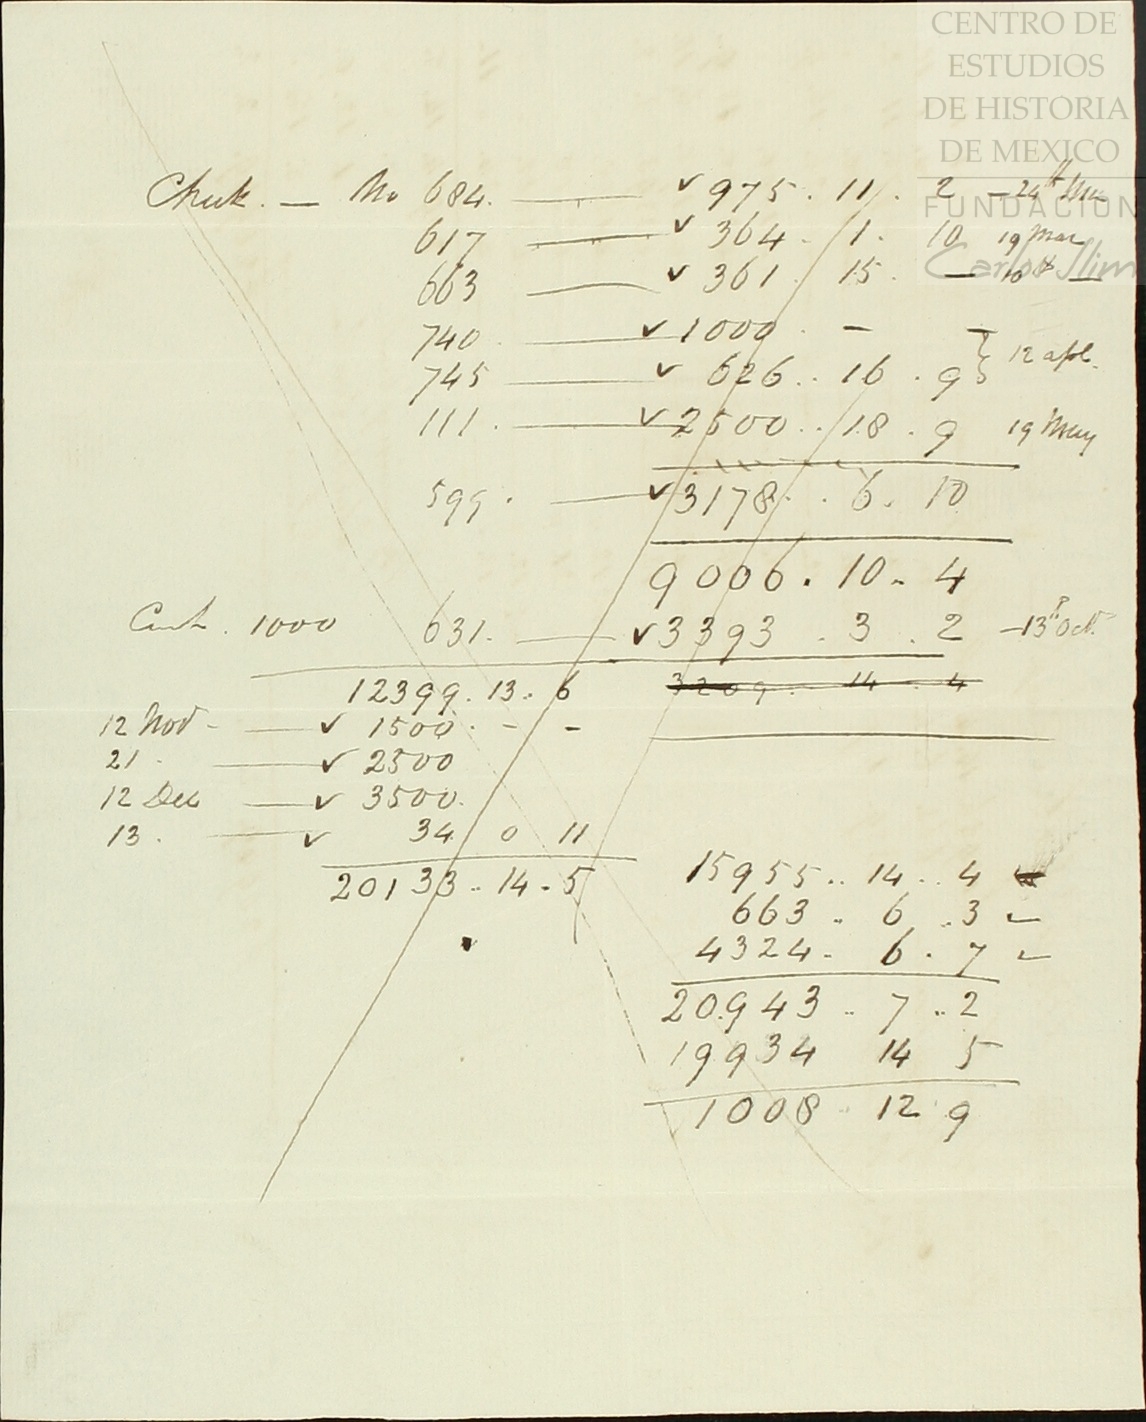 CENTRO DE
ESTUDIOS
DE HISTORIA
DE MEXICO
FUNDACIÓN
Carlos Slim
Check. — No 684. — ✓ 975. 11. 2 — 24th
617 — ✓ 364. 1. 10 19 Mar
663 — ✓ 361. 15. — 10th —
740 — ✓ 1000. — —
745 — ✓ 626.. 16. 9 } 12 apl.
111. — ✓ 2500.. 18. 9 19 May
599. — ✓ 3178.. 6. 10
9006. 10. 4
Cash. 1000 631. — ✓ 3393. 3. 2 — 13th Oct.
12399. 13. 6 3209.. 14. 4
12 Nov — ✓ 1500. - -
21. — ✓ 2500
12 Dec — ✓ 3500.
13. — ✓ 34 0 11
20133.. 14. 5
15955.. 14.. 4
663.. 6.. 3
4324. 6. 7
20943.. 7.. 2
19934 14 5
1008. 12 9